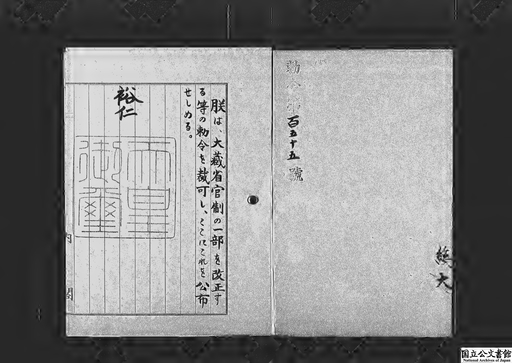 勅令第百五十五號
總大
朕は、大藏省官制の一部を改正す
る等の勅令を裁可し、ここにこれを公布
せしめる。
裕仁
天皇
御璽
内閣
国立公文書館
National Archives of Japan